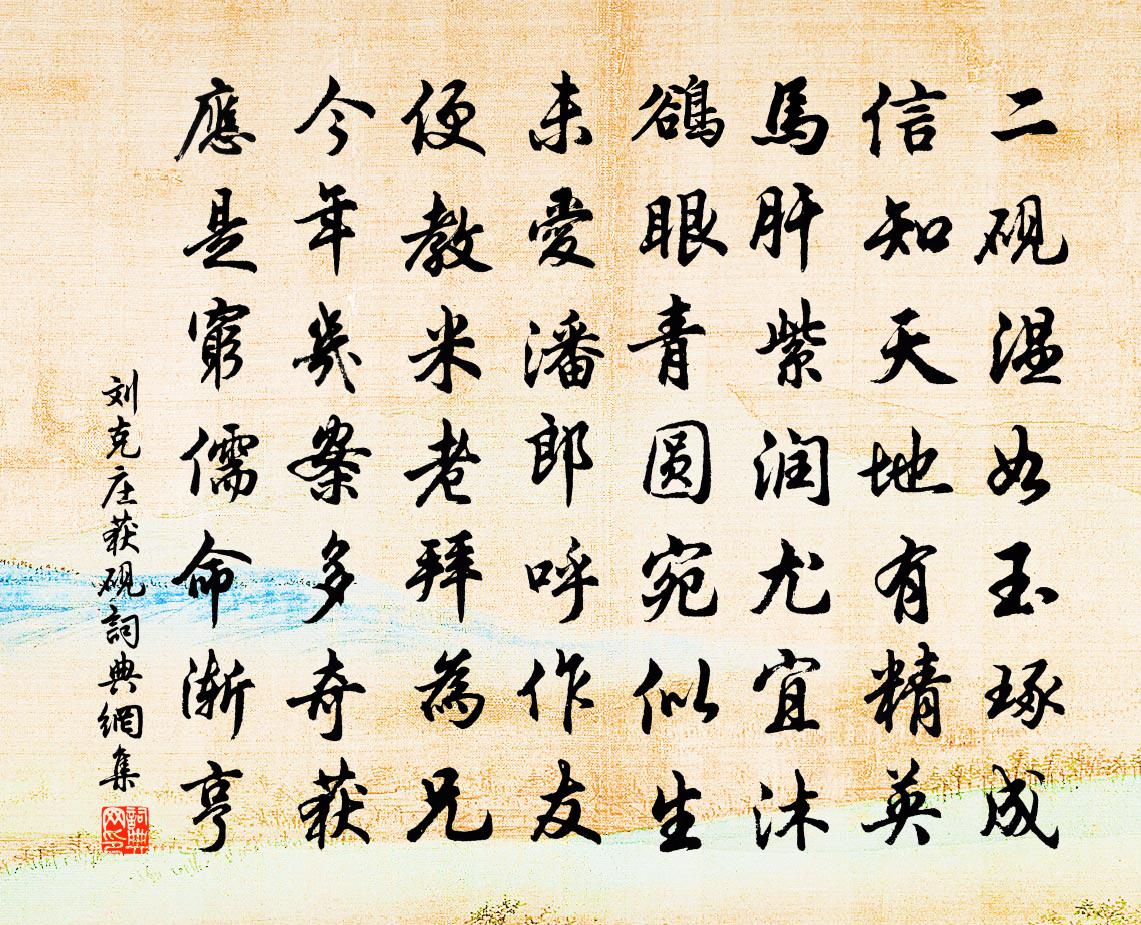 二砚温如玉琢成
信知天地有精英
馬肝紫润尤宜沐
鵒眼青圆宛似生
未愛潘郎呼作友
便教米老拜為兄
今年幾案多奇获
應是窮儒命渐亨
刘克庄获砚詞典網集
詞典网印